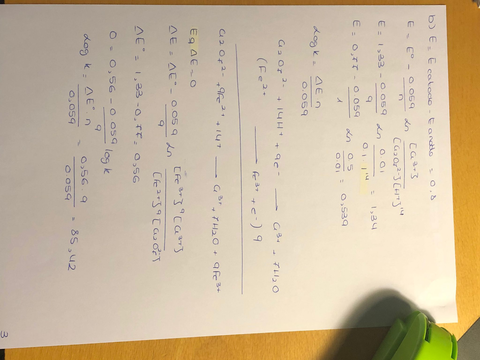 b) E = Ecatodo - Eanodo = 0,8
E = E° - 0.059/n ln [Cr3+]/[Cr2O7 2-][H+]14
E = 1,33 - 0.059/9 ln 0.01/0.1 14 = 1,34
E = 0,77 - 0.059/1 ln 0.5/0.01 = 0,539
Log k = ΔE n/0.059
Cr2O7 2- + 14H+ + 9e- → Cr3+ + 7H2O
(Fe2+ → Fe3+ + e-) 9
Cr2O7 2- + 9Fe2+ + 14+ → Cr3+ + 7H2O + 9Fe3+
Eq ΔE = 0
ΔE = ΔE° - 0.059/9 ln [Fe3+]9 [Cr3+]/[Fe2+]9 [Cr2O7 2-]
ΔE° = 1,33 - 0,77 = 0,56
0 = 0,56 - 0.059/9 log k
Log k = ΔE° n/0,059 = 0,56 9/0.059 = 85,42
3